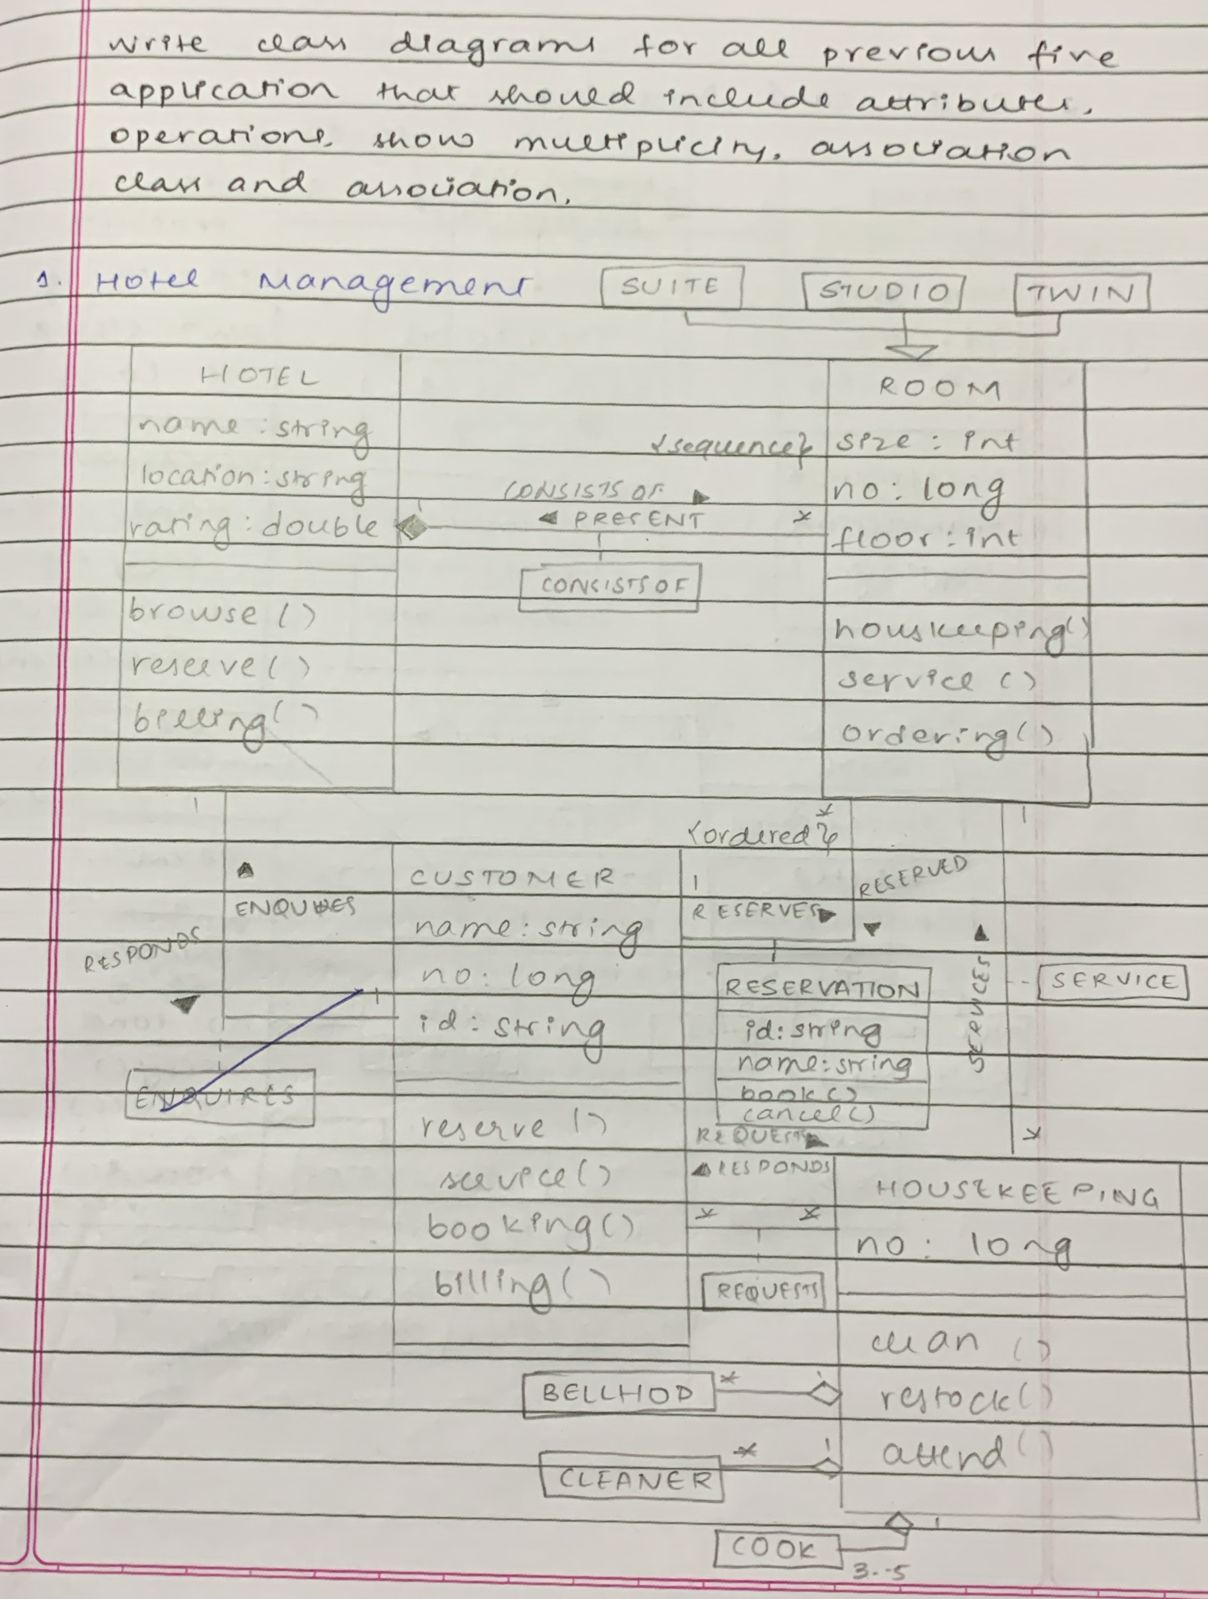 write class diagrams for all previous five
application that should include attributes,
operations, show multiplicity, association
class and association.
1. Hotel Management
SUITE
STUDIO
TWIN
HOTEL
name : string
location : string
rating : double
browse ( )
reserve ( )
billing ( )
CONSISTS OF ▶
◀ PRESENT
*
CONSISTS OF
{sequence}
ROOM
size : int
no : long
floor : int
houskeeping()
service ( )
ordering ( )
1
ENQUIRES
RESPONDS
1
ENQUIRES
CUSTOMER
name : string
no : long
id : string
reserve ( )
service ( )
booking ( )
billing ( )
*
{ordered}
1
RESERVES ▶
RESERVED
RESERVATION
id: string
name: string
book ( )
cancel ( )
1
SERVICES
SERVICE
*
REQUESTS ▶
◀ RESPONDS
* *
REQUESTS
HOUSEKEEPING
no : long
clean ( )
restock ( )
attend ( )
BELLHOD
*
1
CLEANER
*
1
COOK
3..5
1